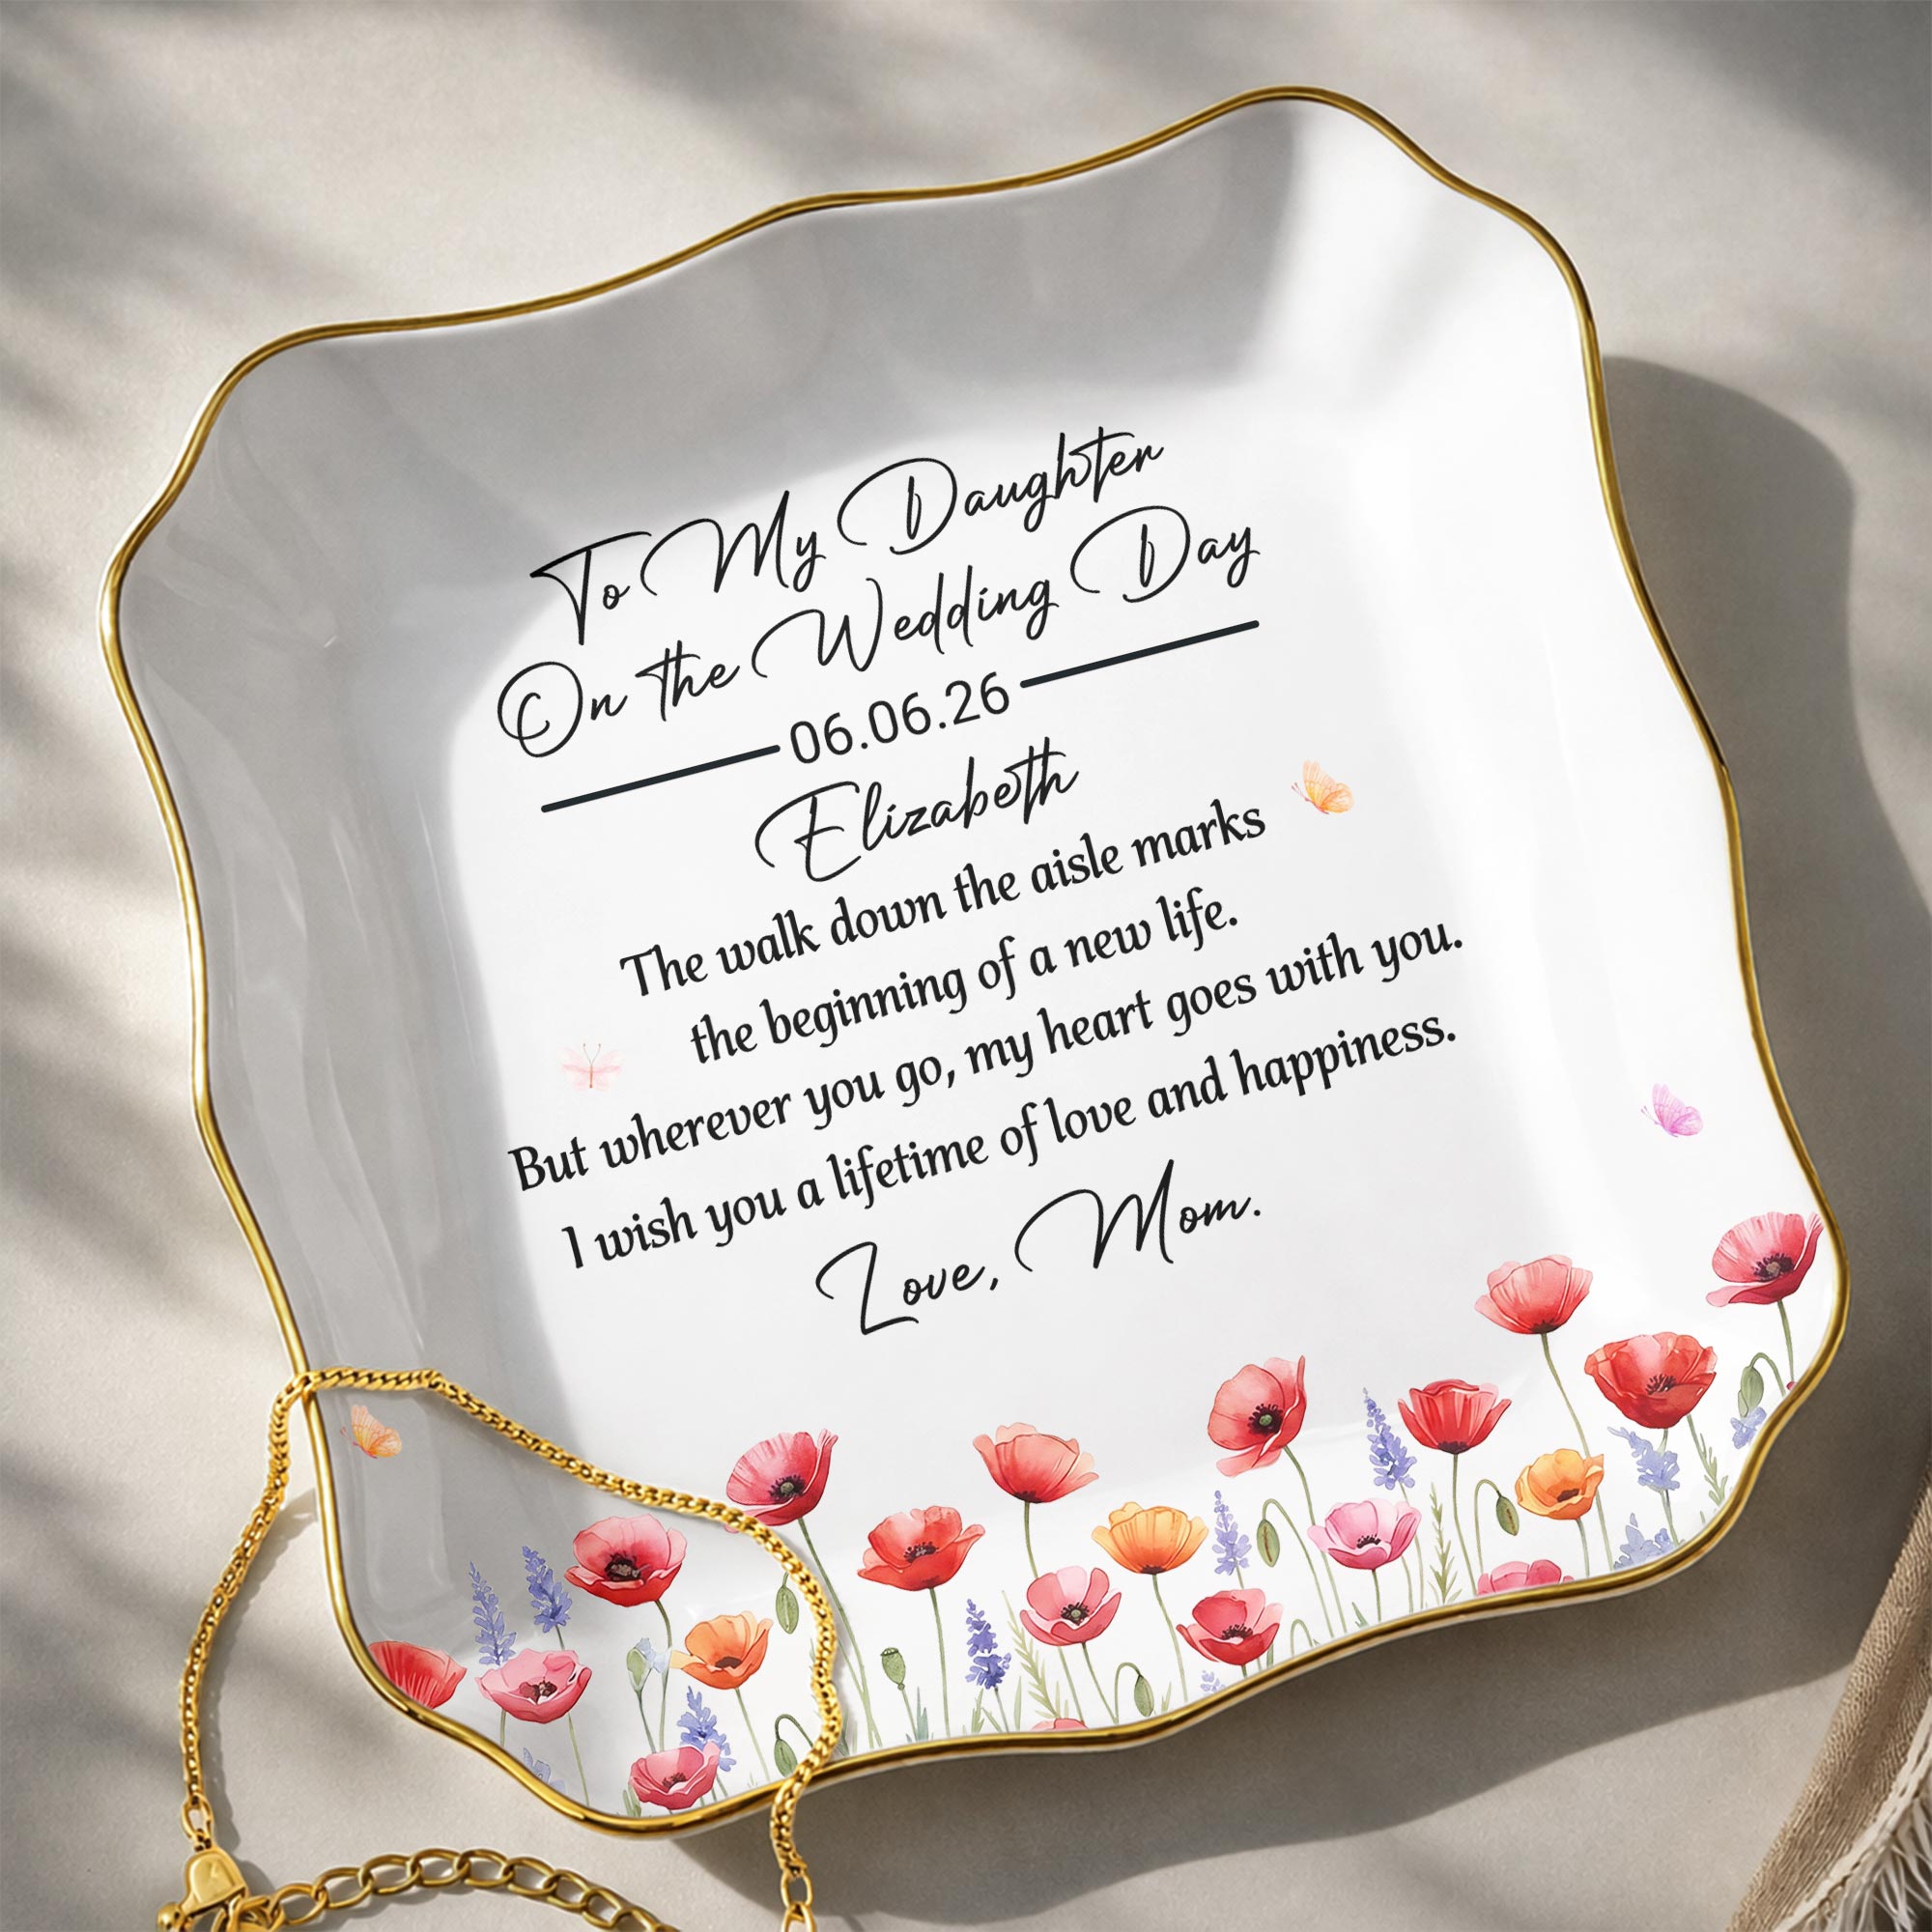 To My Daughter
On the Wedding Day
06.06.26
Elizabeth
The walk down the aisle marks
the beginning of a new life.
But wherever you go, my heart goes with you.
I wish you a lifetime of love and happiness.
Love, Mom.